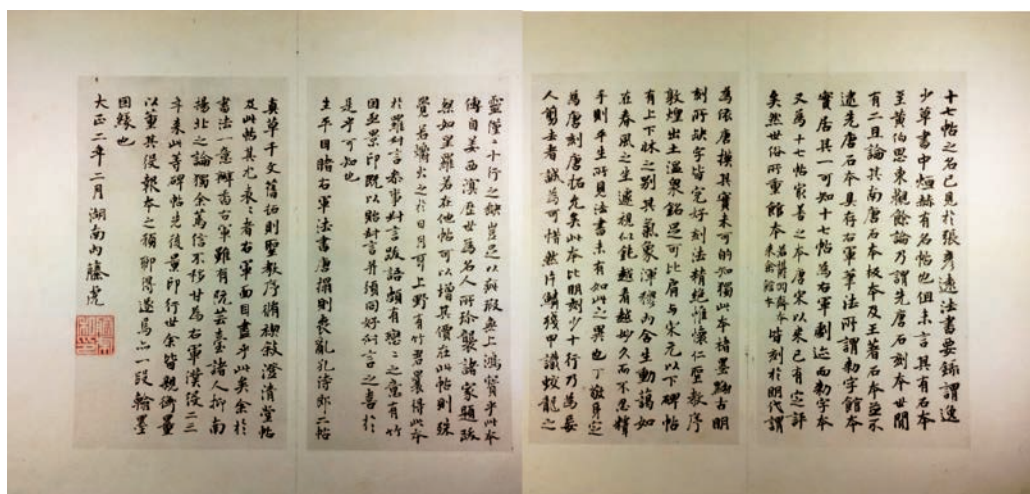 十七帖之名已見於張彥遠法書要錄謂逸
少草書中烜赫有名帖也但未言其有石本
至黃伯思東觀餘論乃謂先唐石刻本世間
有二且論其南唐石本板本及王著石本並不
逮先唐石本具存右軍筆法所謂勅字館本
實居其一可知十七帖為右軍劇迹而勅字本
又為十七帖最善之本唐宋以來已有定評
矣然世俗所重館本皆刻於明代謂
為依唐橅其實未可的知獨此本楮墨黝古明
刻所缺字皆完好刻法精絕惟懷仁聖教序
敦煌出土溫泉銘足可比肩與宋元以下碑帖
有上下牀之別其氣象渾穆內含生動藹如
在春風之坐遽視似鈍越看越妙久而不忍釋
手則平生所見法書未有如此之異也丁敬身定
為唐刻唐拓允矣此本比明刻少十行乃為妄
人剪去者誠為可惜然片鱗殘甲識蛟龍之
靈區十行之缺豈足以為瑕無上鴻寶乎此本
傳自姜西溟歷世為名人所珍襲諸家題跋
粲如星羅若在他帖可以增其價在此帖則殊
覺若爝火之於日月耳上野有竹君曩得此本
於羅叔言參事叔言跋語頗有戀戀之意有竹
因亟景印既以貽叔言并頒同好叔言之喜於
是乎可知也
生平目睹右軍法書唐搨則喪亂孔侍郎二帖
真草千文舊拓則聖教序褉敘澄清堂帖
及此帖其尤表表者右軍面目盡乎此矣余於
書法一意瓣香右軍雖有阮芸臺諸人抑南
揚北之論獨余篤信不移甘為右軍僕役二三
年來此等碑帖先後景印行世余皆親銜量
以董其役報本之獮聊得遂焉亦一段翰墨
因緣也
大正二年二月湖南內藤虎